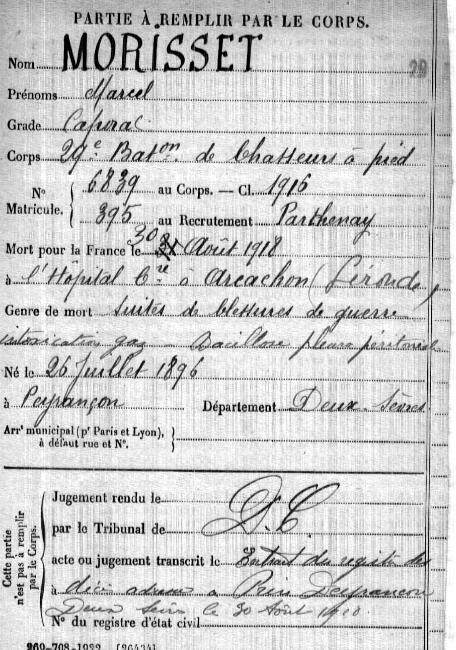 PARTIE À REMPLIR PAR LE CORPS.
Nom MORISSET
29
Prénoms Marcel
Grade Caporal
Corps 29e Baton de Chasseurs à pied
N° Matricule. { 6839 au Corps. — Cl. 1916
395 au Recrutement Parthenay
Mort pour la France le 30 31 Août 1918
à l'Hôpital Cre à Arcachon (Gironde)
Genre de mort suites de blessures de guerre
intoxication gaz - bacillose pleuro péritonéale
Né le 26 Juillet 1896
à Peyrançon Département Deux-Sèvres
Arrt municipal (pr Paris et Lyon), }
à défaut rue et N°.
Cette partie n'est pas à remplir par le Corps.
Jugement rendu le
par le Tribunal de D.C.
acte ou jugement transcrit le Extrait du registre des
à à Prin Deyrançon
Deux Sèvres le 30 Août
N° du registre d'état civil
269-708-1922. [26434]